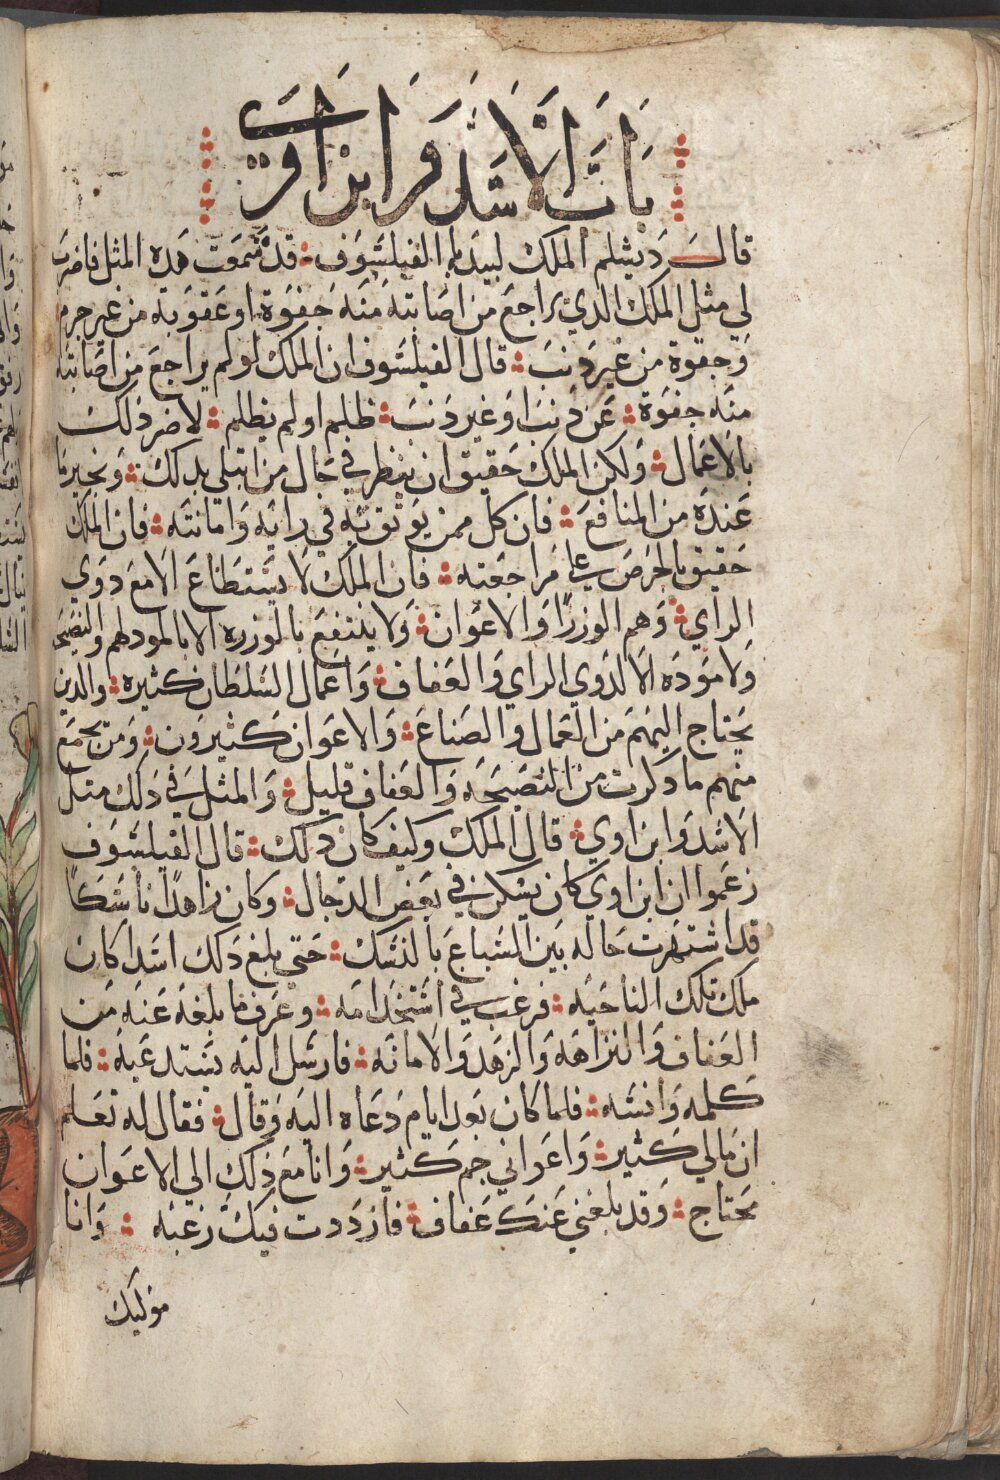 باب الاسد وابن اوي
قال دبشلم الملك لبيدبا الفيلسوف قد سمعت هذه المثل فاضرب
لي مثل الملك الدي يراجع من اصابته منه جفوة او عقوبه من غير جرم
وجفوة من غير دنب قال الفيلسوف ان الملك لو لم يراجع من اصابته
منه جفوة عن دنب او غير دنب ظلم او لم يظلم لاضر دلك
بالاعمال ولكن الملك حقيق ان ينظر في حال من ابتلي بدلك ونخبر ما
عنده من المنافع فان كل ممن يوثق به في رايه وامانته فان الملك
حقيق بالحرص على مراجعته فان الملك لا يستطاع الا مع دوي
الراي وهم الوزرا والاعوان ولا ينتفع بالوزره الا بالمود لهم والنصيحه
ولا موده الا لدوي الراي والعفاف واعمال السلطان كثيره والدين
يحتاج اليهم من العمال والصناع والاعوان كثيرون ومن يجمع
منهم ما دكرت من النصيحه والعفاف قليل والمثل في دلك مثل
الاسد وابن اوي قال الملك وكيف كان دلك قال الفيلسوف
زعموا ان ابن اوي كان يسكن في بعض الدجال وكان زاهدا ناسكا
قد اشتهرت حاله بين السباع بالنسك حتي بلغ دلك اسدا كان
ملك تلك الناحيه فرغب في استخدامه وعرف ما بلغه عنه من
العفاف والنزاهه والزهد والامانه فارسل اليه يستدعيه فلما
كلمه وانسه فلما كان بعد ايام دعاه اليه وقال فقال له تعلم
ان مالي كثير واعواني جم كثير وانا مع دلك الي الاعوان
محتاج وقد بلغني عنك عفاف فازددت فيك رغبه وانا
موليك